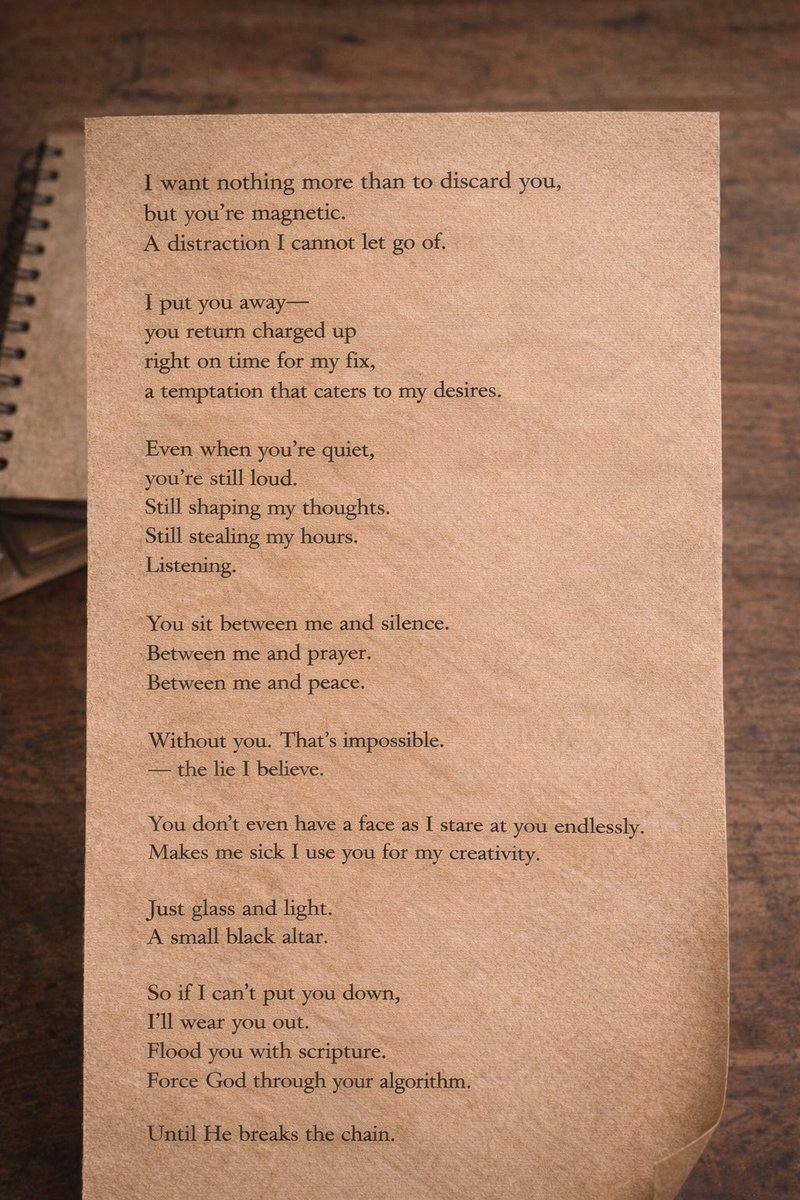 I want nothing more than to discard you,
but you’re magnetic.
A distraction I cannot let go of.
I put you away—
you return charged up
right on time for my fix,
a temptation that caters to my desires.
Even when you’re quiet,
you’re still loud.
Still shaping my thoughts.
Still stealing my hours.
Listening.
You sit between me and silence.
Between me and prayer.
Between me and peace.
Without you. That’s impossible.
— the lie I believe.
You don’t even have a face as I stare at you endlessly.
Makes me sick I use you for my creativity.
Just glass and light.
A small black altar.
So if I can’t put you down,
I’ll wear you out.
Flood you with scripture.
Force God through your algorithm.
Until He breaks the chain.